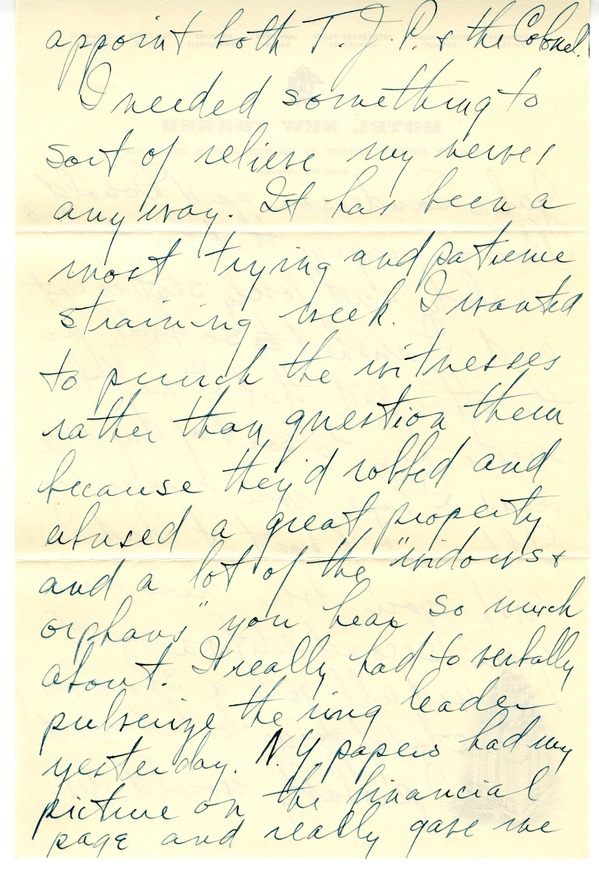 appoint both T. J. P. & the Colonel.
I needed something to
sort of relieve my nerves
anyway. It has been a
most trying and patience
straining week. I wanted
to punch the witnesses
rather than question them
because they'd robbed and
abused a great property
and a lot of the "widows &
orphans" you hear so much
about. I really had to verbally
pulverize the ring leader
yesterday. N.Y papers had my
picture on the financial
page and really gave me
HOTEL NEW YORKER